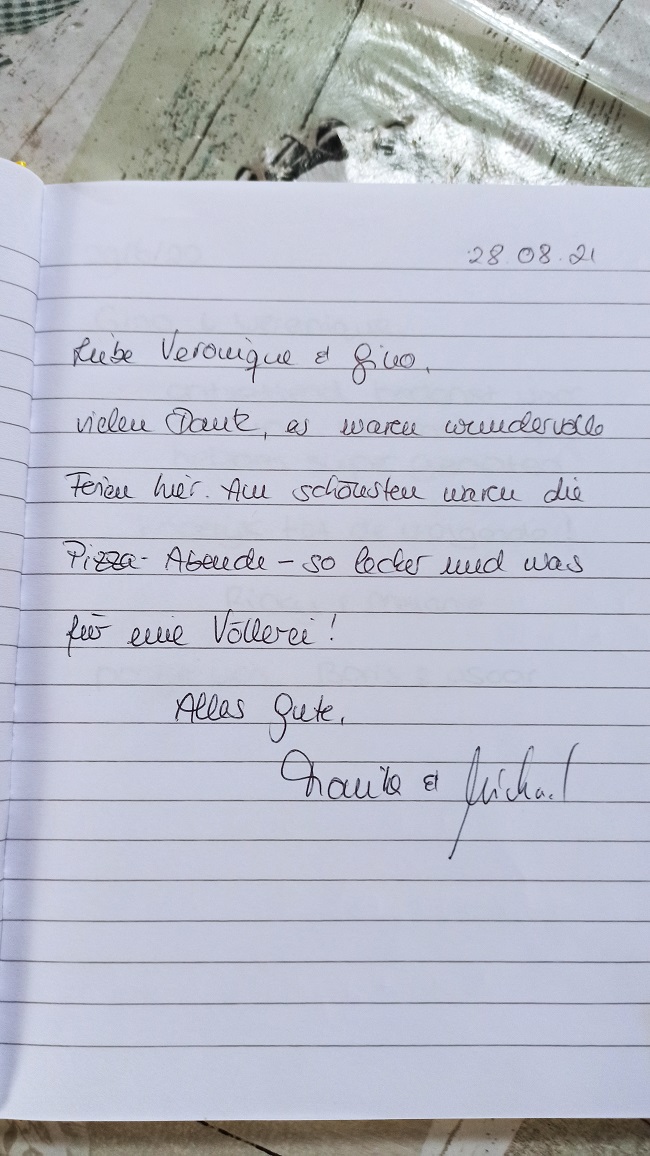 28.08.21
Liebe Veronique & Gino,
vielen Dank, es waren wundervolle
Ferien hier. Am schönsten waren die
Pizza-Abende – so lecker und was
für eine Völlerei!
Alles Gute,
& Michael